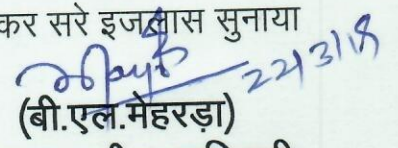 कर सरे इजलास सुनाया
22/3/18
(बी.एल.मेहरड़ा)